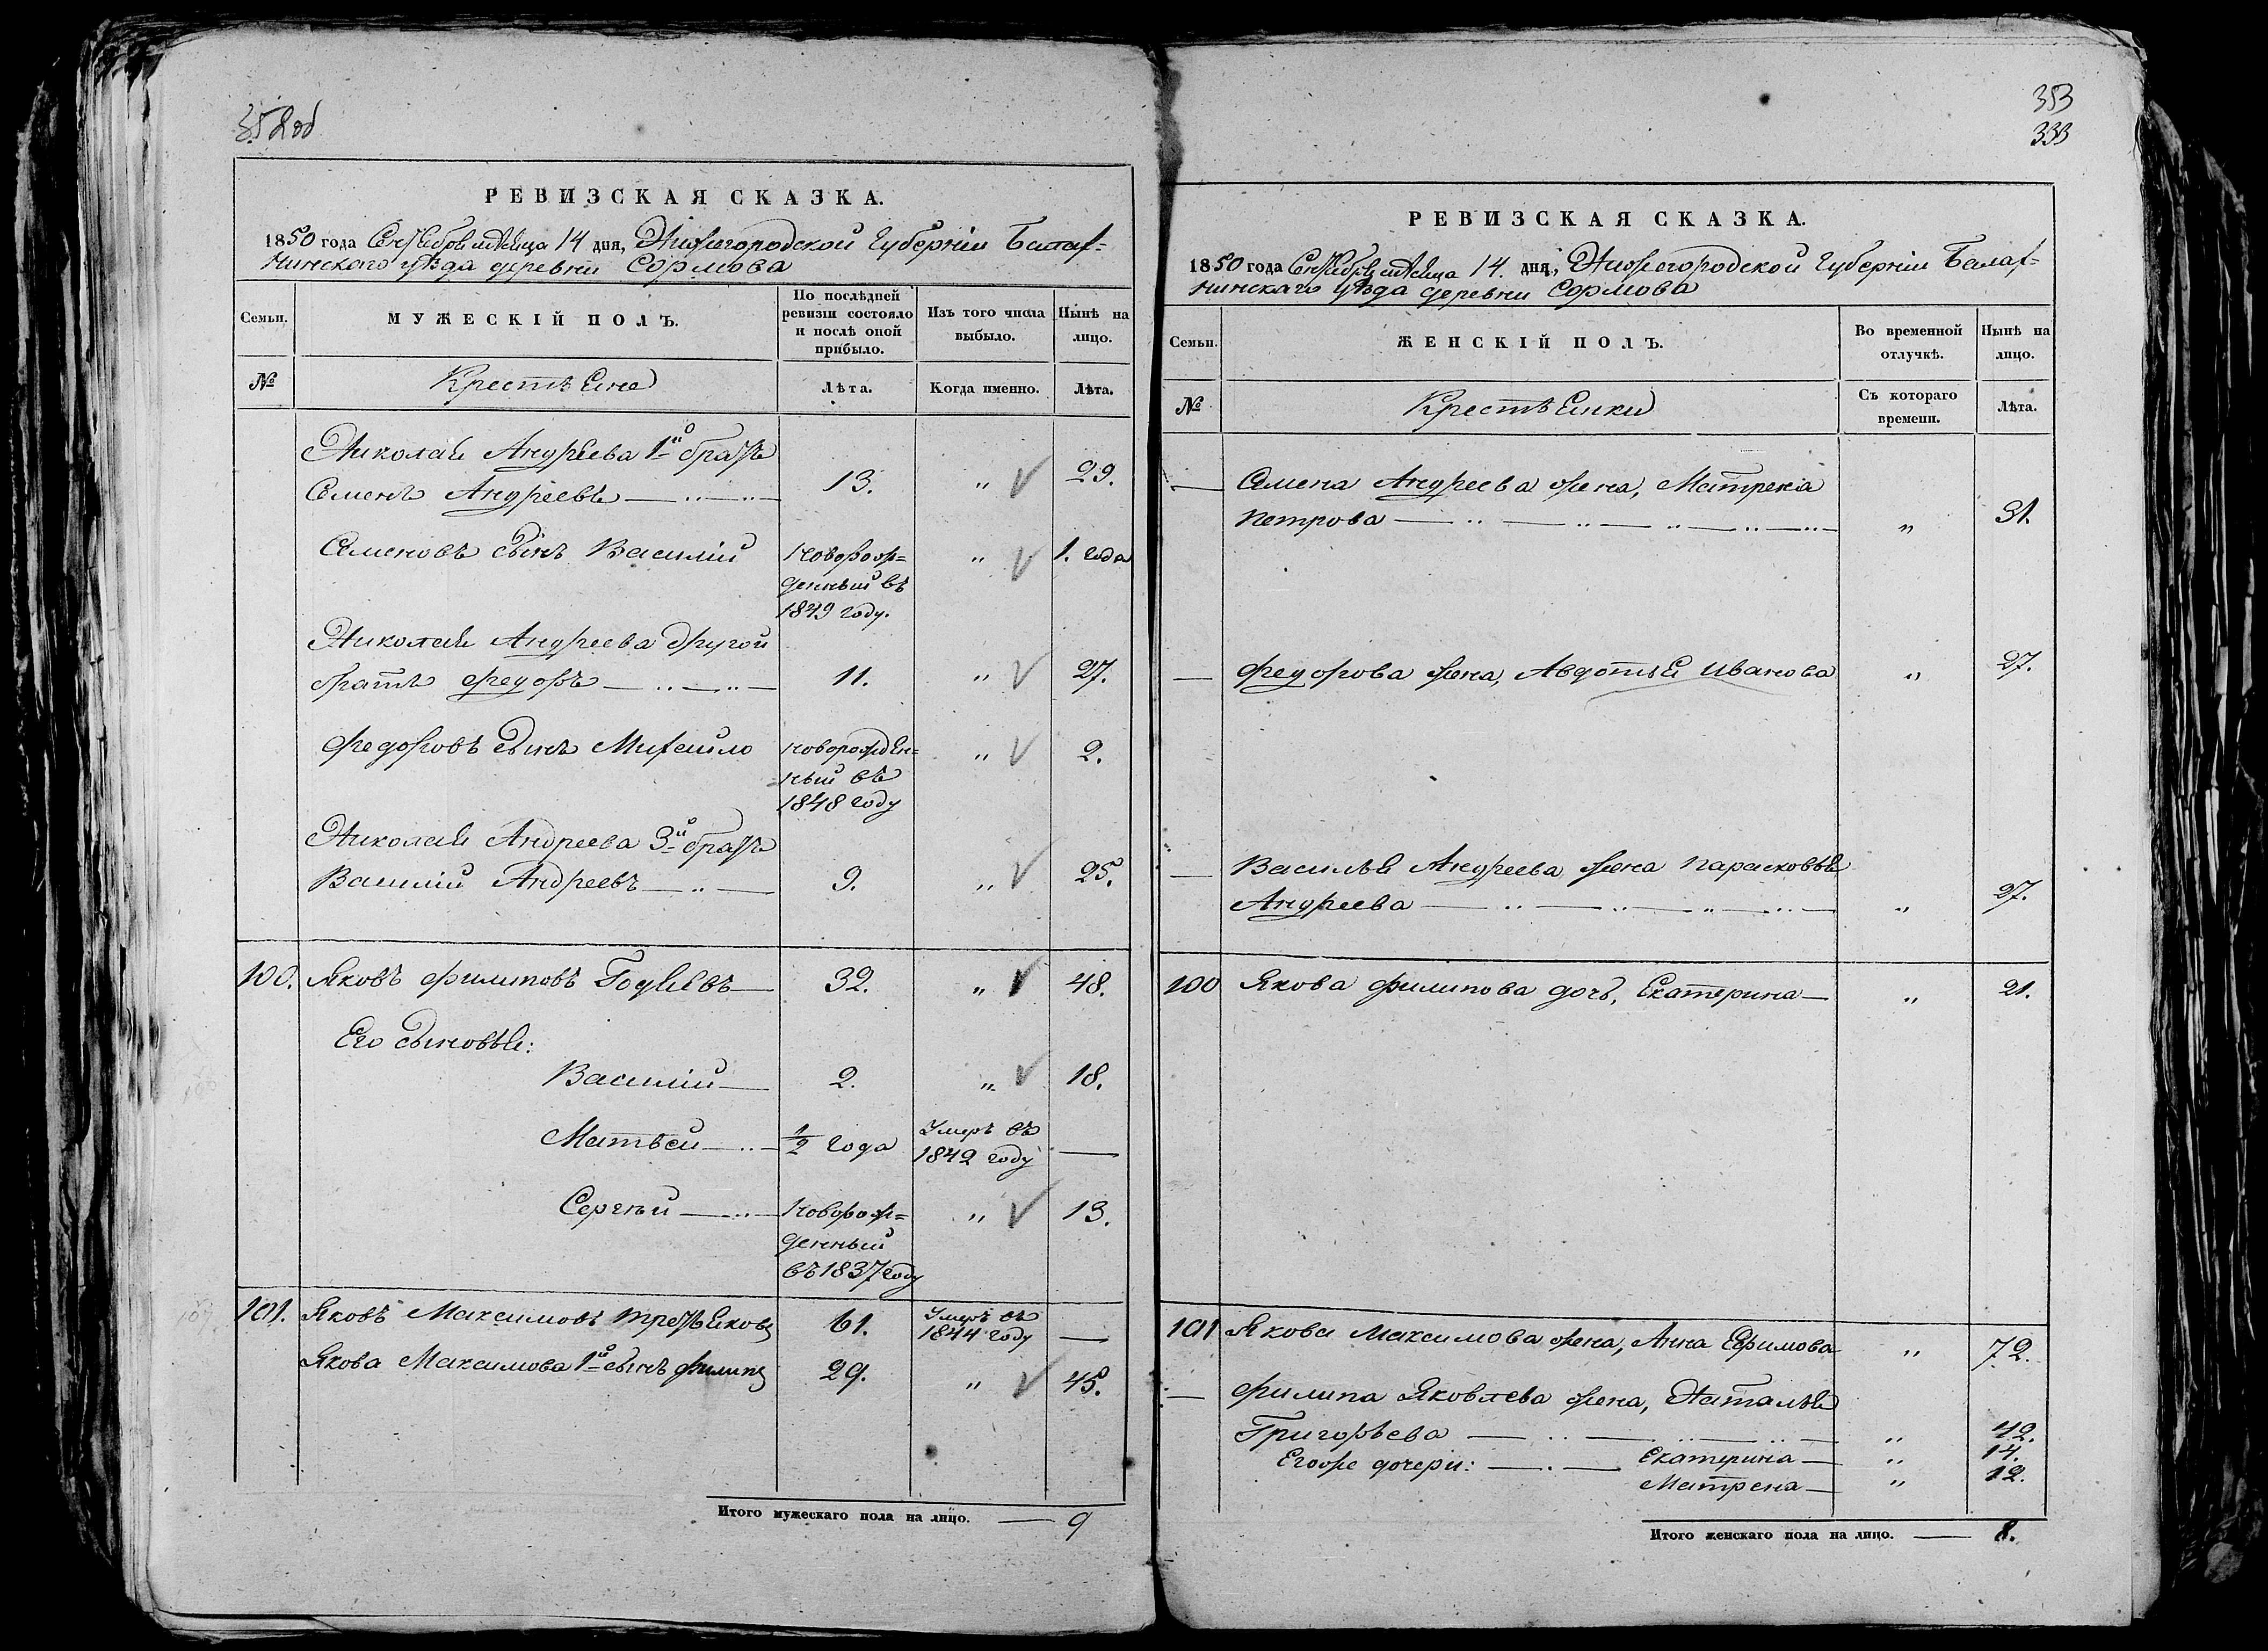 352об
РЕВИЗСКАЯ СКАЗКА.
1850 года Сентября мѣсяца 14 дня, Нижегородской Губерніи Балах=
нинскаго уѣзда деревни Сормова
Семьи.
МУЖЕСКІЙ ПОЛЪ.
По послѣдней
ревизіи состояло
и послѣ оной
прибыло.
Изъ того числа
выбыло.
Нынѣ на
лицо.
№
Крестьяне
Лѣта.
Когда именно.
Лѣта.
Николая Андреева 1й братъ
Семенъ Андреевъ 13. " 29.
Семеновъ сынъ Василій новорож= " 1. года
денный въ
1849 году.
Николая Андреева другой
братъ Федоръ 11. " 27.
Федоровъ сынъ Михайло новорожден= " 2.
ный въ
1848 году
Николая Андреева 3й братъ
Василій Андреевъ 9. " 25.
100. Яковъ Филиповъ Годяевъ 32. " 48.
Его сыновья:
Василій 2. " 18.
Матвей 1/2 года Умеръ въ
1842 году —
Сергѣй новорож= " 13.
денный
въ 1837 году
101. Яковъ Максимовъ Третьяковъ 61. Умеръ въ
1844 году —
Якова Максимова 1й сынъ Филипъ 29. " 45.
Итого мужескаго пола на лицо. — 9
353
333
РЕВИЗСКАЯ СКАЗКА.
1850 года Сентября мѣсяца 14. дня, Нижегородской Губерніи Балах=
нинскаго уѣзда деревни Сормова
Семьи.
ЖЕНСКІЙ ПОЛЪ.
Во временной
отлучкѣ.
Нынѣ на
лицо.
№
Крестьянки
Съ котораго
времени.
Лѣта.
— Семена Андреева жена, Матрена
Петрова " 31.
— Федорова жена, Авдотья Иванова " 27.
— Василья Андреева жена Парасковья
Андреева " 27.
100 Якова Филипова дочь, Екатерина " 21.
101 Якова Максимова жена, Анна Ефимова " 72.
— Филипа Яковлева жена, Наталья
Григорьева " 42.
Егоже дочери: Екатерина " 14.
Матрена " 12.
Итого женскаго пола на лицо. — 8.